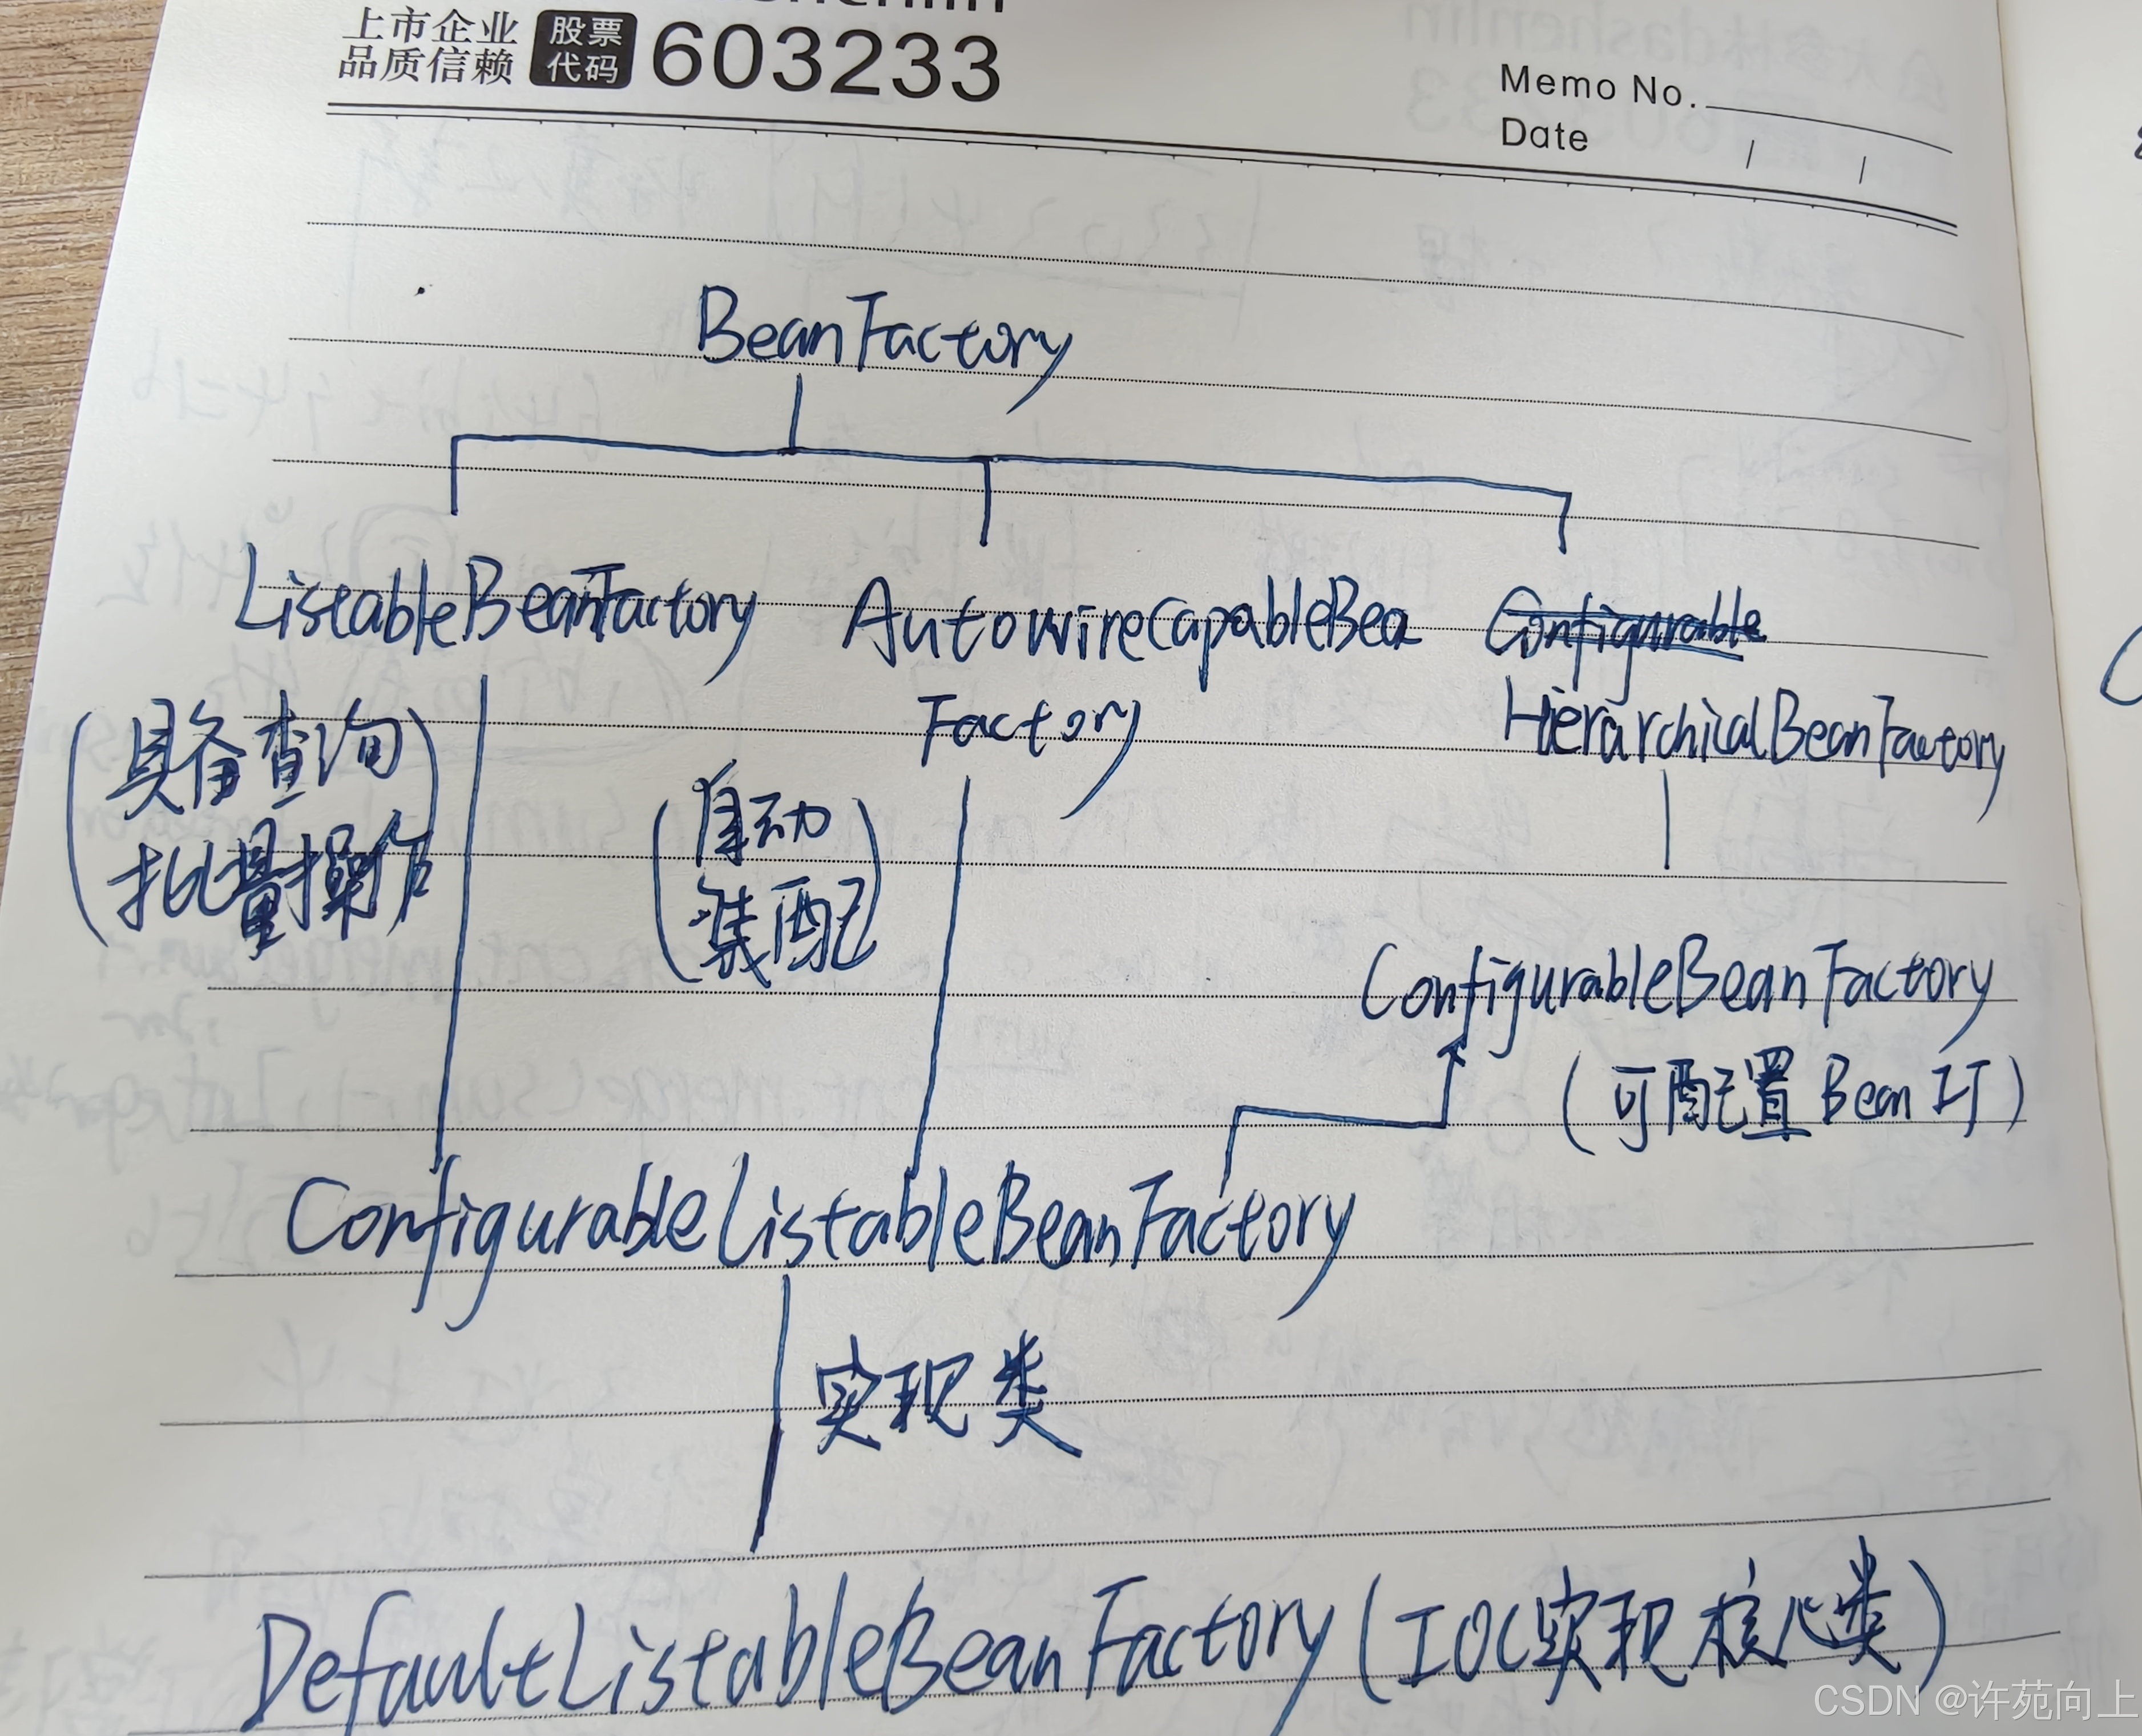 上市企业
品质信赖
股票
代码
603233
Memo No.
Date / /
BeanFactory
ListableBeanFactory
AutowireCapableBea
Factory
Configurable
HierarchicalBeanFactory
(具备查询
批量操作)
(自动
装配)
ConfigurableBeanFactory
(可配置 Bean 工厂)
ConfigurableListableBeanFactory
实现类
DefaultListableBeanFactory (IOC实现核心类)
CSDN @许苑向上